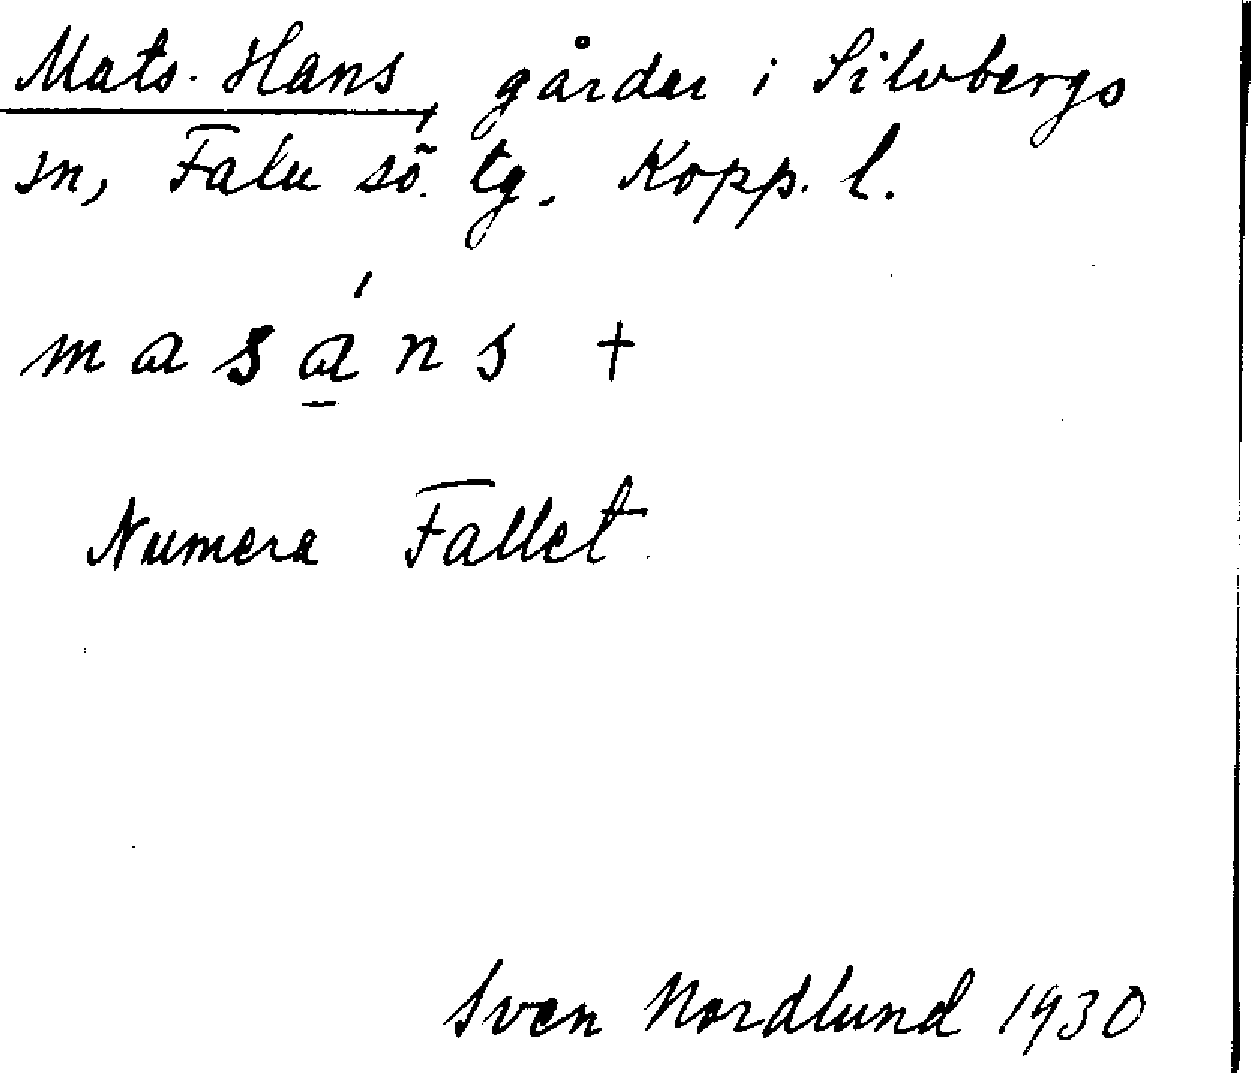 Mats-Hans, gårdar i Silvbergs
sn, Falu sö. tg. Kopp. l.
masáns +
Numera Fallet
Sven Nordlund 1930